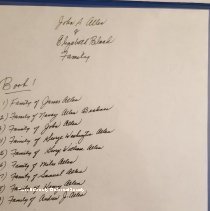 John S. Allen
&
Elizabeth Black
Family
Book 1
1) Family of James Allen
2) Family of Nancy Allen
3) Family of John Allen
4) Family of George Washington Allen
5) Family of Allen
6) Family of Miles Allen
7) Family of Samuel Allen
8) Family of Allen
9) Family of Andrew J. Allen